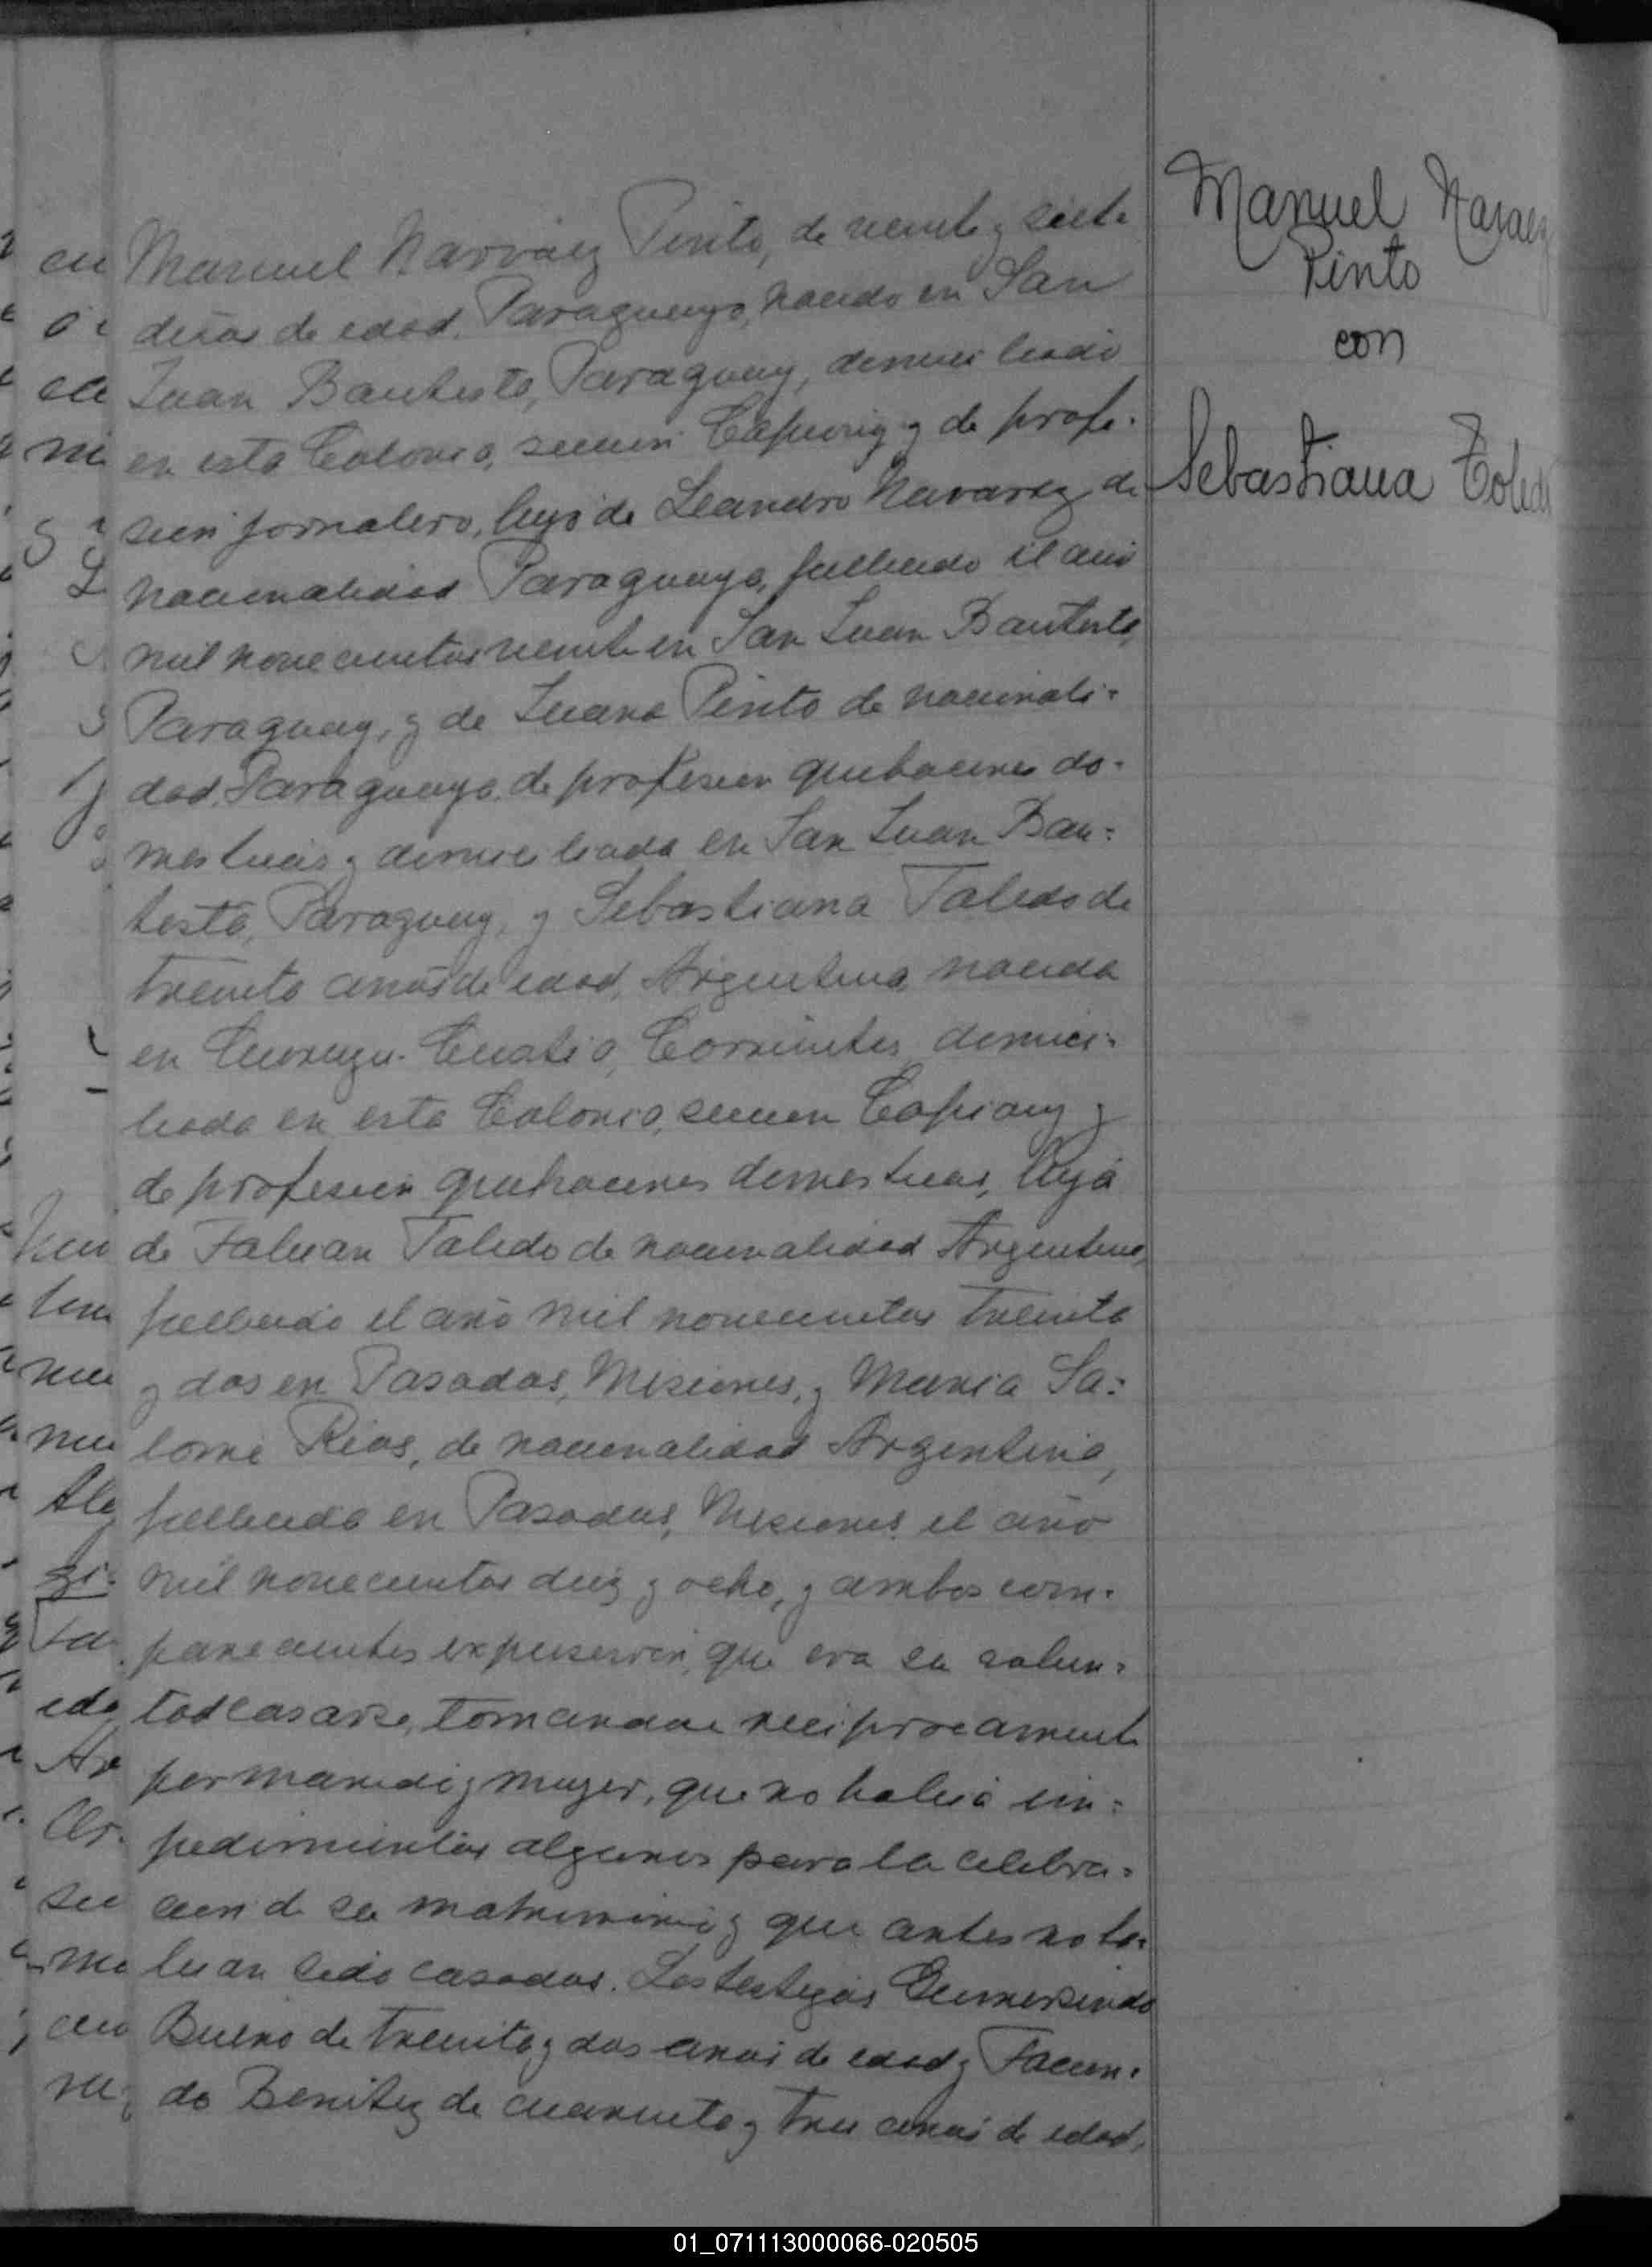 Manuel Narváez Pinto, de veinte y siete
años de edad, Paraguayo, nacido en San
Juan Bautista, Paraguay, domiciliado
en esta Colonia, sección y de profe-
sión jornalero, hijo de Leandro Navarez de
nacionalidad Paraguaya, fallecido el año
mil novecientos veinte en San Juan Bautista,
Paraguay, y de Juana Pinto de nacionali-
dad Paraguaya, de profesión quehaceres do-
mesticos y domiciliada en San Juan Bau-
tista, Paraguay, y Sebastiana Toledo de
treinta años de edad, Argentina, nacida
en Curuzu-Cuatia, Corrientes, domici-
liada en esta Colonia, sección y
de profesión quehaceres domesticos, hija
de Fabian Toledo de nacionalidad Argentina,
fallecido el año mil novecientos treinta
y dos en Posadas, Misiones, y Maria Sa-
lomé Rios, de nacionalidad Argentina,
fallecida en Posadas, Misiones el año
mil novecientos diez y ocho, y ambos com-
parecientes expusieron que era su volun-
tad casarse, tomandose reciprocamente
por marido y muger, que no habia im-
pedimentos algunos para la celebra-
ción de su matrimonio y que antes no ha-
bian sido casados. Los testigos Gumersindo
Bueno de treinta y dos años de edad y Facun-
do Benitez de cuarenta y tres años de edad,
Manuel Narvaez
Pinto
con
Sebastiana Toledo
01_071113000066-020505